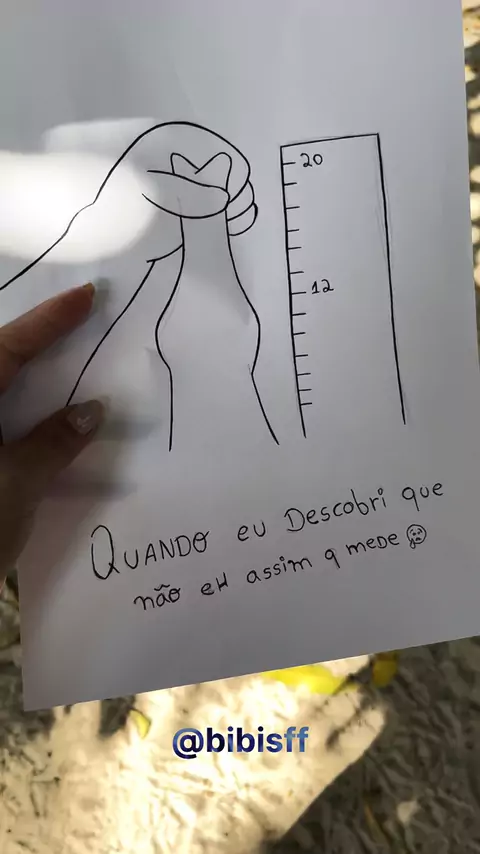 20
12
QUANDO eu Descobri que
não eH assim q mede
@bibisff